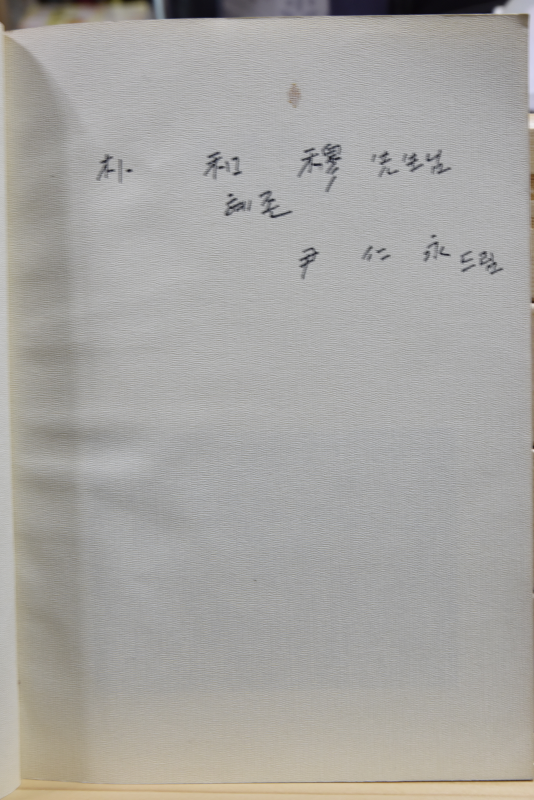 朴 和 穆 先生님
혜존
尹 仁 永 드림